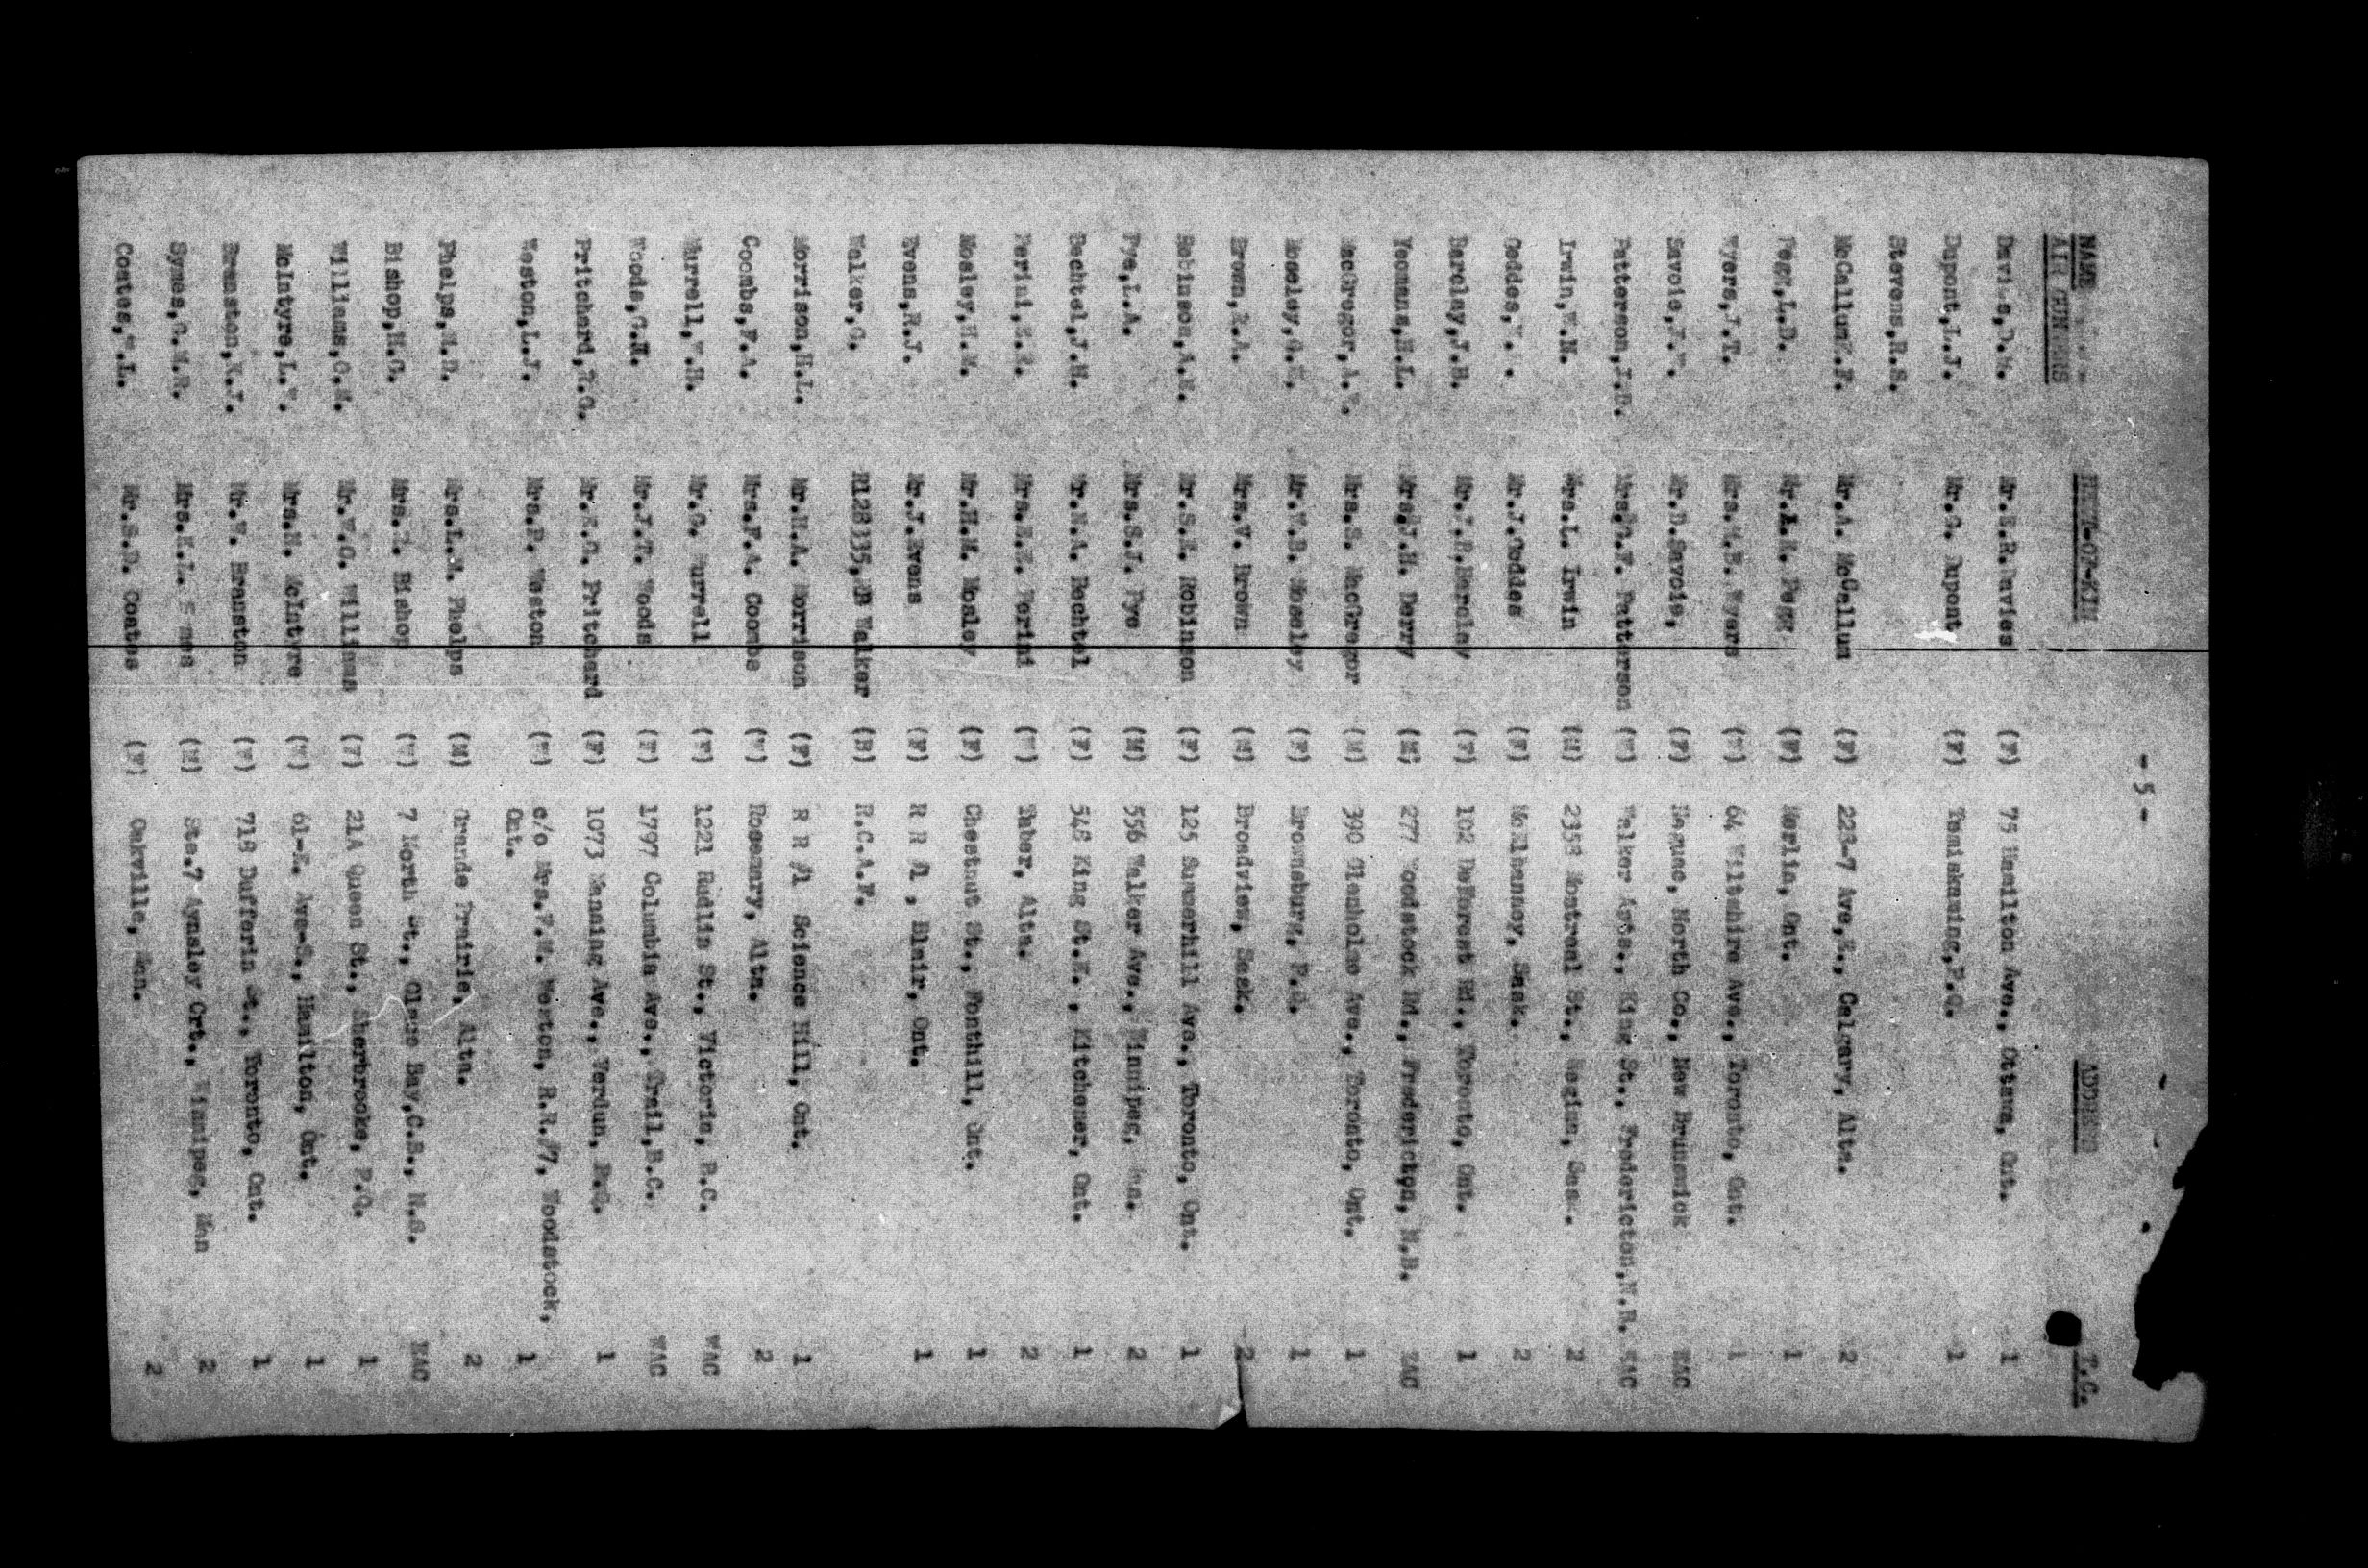 - 5 -
NAME NEXT-OF-KIN ADDRESS T.C.
AIR GUNNERS
Davies,D.W. Mr.E.R.Davies (F) 75 Hamilton Ave., Ottawa, Ont. 1
Dupont,L.J. Mr.G. Dupont (F) Temiskaming,P.Q. 1
Stevens,R.S.
McCallum,K.F. Mr.A. McCallum (F) 223-7 Ave,E., Calgary, Alta. 2
Pegg,L.D. Mr.A.E. Pegg (F) Merlin, Ont. 1
Wyers,J.T. Mrs.M.E. Wyers 64 Wiltshire Ave., Toronto, Ont. 1
Savoie,J. Mr.D.Savoie, (F) Neguac, North Co., New Brunswick EAC
Patterson,J.E. Mrs.G.F. Patterson Walker Apts., King St., Fredericton,N.B. EAC
Irwin,W.N. Mrs.L. Irwin (M) 2358 Montreal St., Regina, Sas. 2
Geddes, Mr.J.Geddes (F) McElhanney, Sask. 2
Barclay,J.B. Mr.J.P.Barclay (F) 102 DeForest Rd., Toronto, Ont. 1
Yeomans,H.L. Mrs.J.H. Derry (M) 277 Woodstock Rd., Fredericton, N.B. EAC
MacGregor,A. Mrs.S. MacGregor (M) 390 Glenholme Ave., Toronto, Ont. 1
Moseley,G.E. Mr.W.B. Moseley (F) Brownsburg, P.Q. 1
Brown,R.A. Mrs.V. Brown (M) Broadview, Sask. 2
Robinson,A.E. Mr.S.E. Robinson (F) 125 Summerhill Ave., Toronto, Ont. 1
Pye,L.A. Mrs.S.J. Pye (M) 556 Walker Ave., Winnipeg, Man. 2
Bechtel,J.H. Mr.N.A. Bechtel (F) 548 King St.E. , Kitchener, Ont. 1
Perini, Mrs.E.E. Perini Taber, Alta. 2
Mosley,H.M. Mr.H.M. Mosley (F) Chestnut St., Fonthill, Ont. 1
Evens,R.J. Mr.J.Evens (F) R R #1 , Blair, Ont. 1
Walker,G. R128335,DB Walker (B) R.C.A.F.
Morrison,H.L. Mr.H.A. Morrison (F) R R #1 Science Hill, Ont. 1
Coombs,F.A. Mrs.F.A. Coombs (W) Rosemary, Alta. 2
Murrell,W.H. Mr.G. Murrell (F) 1221 Rudlin St., Victoria, B.C. WAC
Woods,G.H. Mr.J.T. Woods (F) 1797 Columbia Ave., Trail,B.C. WAC
Pritchard,R.G. Mr.E.G. Pritchard (F) 1073 Manning Ave., Verdun, P.Q. 1
Weston,L.J. Mrs.P. Weston (W) c/o Mrs.F.W. Weston, R.R.#7, Woodstock,
Ont. 1
Phelps,M.D. Mrs.L.M. Phelps (M) Grande Prairie, Alta. 2
Bishop,H.G. Mrs. Bishop 7 North St., Glace Bay,C.B., N.S. EAC
Williams,C.E. Mr.F.G. Williams (F) 21A Queen St., Sherbrooke, P.Q. 1
McIntyre,L.W. Mrs.N. McIntyre 61-E. Ave-S., Hamilton, Ont. 1
Branston,K.J. Mr.W. Branston (F) 718 Dufferin St., Toronto, Ont. 1
Symes,G.M.R. Mrs.K.L. Symes (M) Ste.7 Aynsley Crt., Winnipeg, Man 2
Coates,W.L. Mr.S.D. Coates (F) Oakville, Man. 2